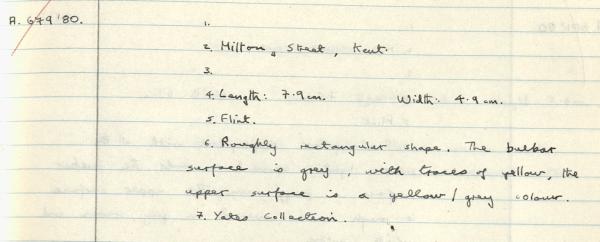 A. 679 '80.
1.
2. Milton, Street, Kent.
3.
4. Length: 7.9 cm. Width: 4.9 cm.
5. Flint.
6. Roughly rectangular shape. The bulbar
surface is grey, with traces of yellow, the
upper surface is a yellow/grey colour.
7. Yates Collection.